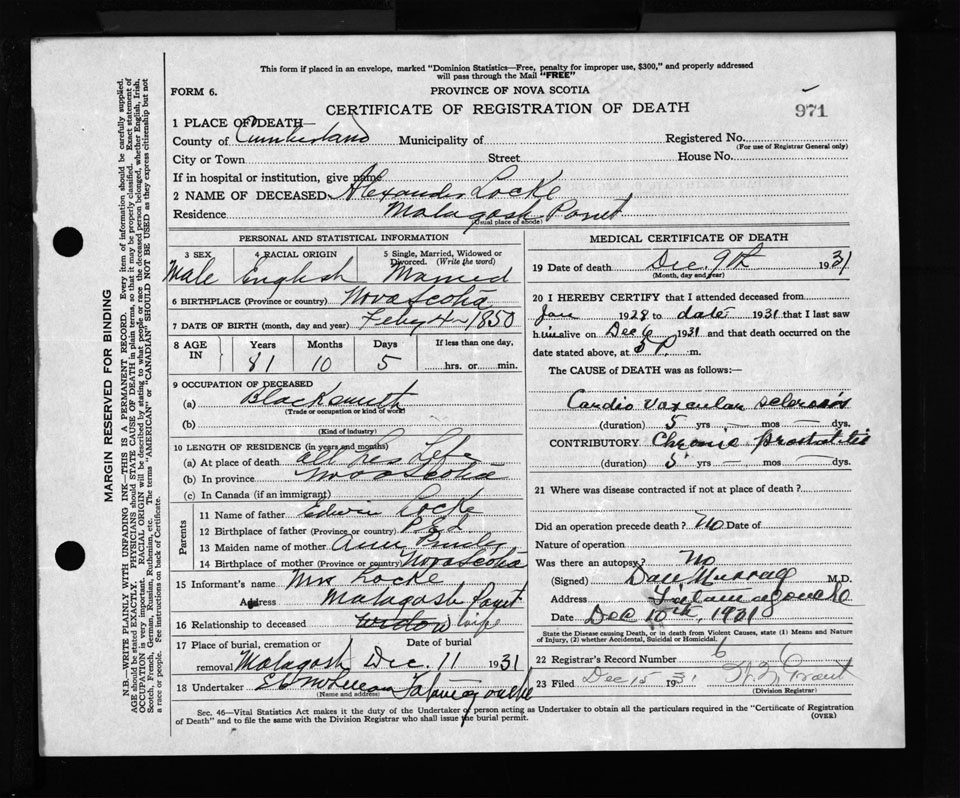 This form if placed in an envelope, marked "Dominion Statistics—Free, penalty for improper use, $300," and properly addressed
will pass through the Mail "FREE"
FORM 6.
PROVINCE OF NOVA SCOTIA
CERTIFICATE OF REGISTRATION OF DEATH
971
1 PLACE OF DEATH—
County of Cumberland Municipality of Registered No.
(For use of Registrar General only)
City or Town Street House No.
If in hospital or institution, give name
2 NAME OF DECEASED Alexander Locke
Residence Malagash Point
(Usual place of abode)
PERSONAL AND STATISTICAL INFORMATION
3 SEX 4 RACIAL ORIGIN 5 Single, Married, Widowed or
Divorced. (Write the word)
Male English Married
6 BIRTHPLACE (Province or country) Nova Scotia
7 DATE OF BIRTH (month, day and year) Feby 4th 1850
8 AGE IN Years Months Days If less than one day,
81 10 5 hrs. or min.
9 OCCUPATION OF DECEASED
(a) Blacksmith
(Trade or occupation or kind of work)
(b)
(Kind of industry)
10 LENGTH OF RESIDENCE (in years and months)
(a) At place of death all his Life
(b) In province Nova Scotia
(c) In Canada (if an immigrant)
Parents
11 Name of father Edwin Locke
12 Birthplace of father (Province or country) P.E.I
13 Maiden name of mother Ann
14 Birthplace of mother (Province or country) Nova Scotia
15 Informant's name Mrs Locke
Address Malagash Point
16 Relationship to deceased widow wife
17 Place of burial, cremation or Date of burial
removal Malagash Dec. 11 1931
18 Undertaker Tatamagouche
(Name and address)
MEDICAL CERTIFICATE OF DEATH
19 Date of death Dec 9th 1931
(Month, day and year)
20 I HEREBY CERTIFY that I attended deceased from
Jan 1928 to date 1931 that I last saw
him alive on Dec 6 1931 and that death occurred on the
date stated above, at 5 P. m.
The CAUSE of DEATH was as follows:
Cardio Vascular sclerosis
(duration) 5 yrs mos dys.
CONTRIBUTORY Chronic Prostatitis
(duration) 5 yrs mos dys.
21 Where was disease contracted if not at place of death?
Did an operation precede death? No Date of
Nature of operation
Was there an autopsy? No
(Signed) Dan Murray M.D.
Address Tatamagouche
Date Dec 10th, 1931
State the Disease causing Death, or in death from Violent Causes, state (1) Means and Nature
of Injury, (2) whether Accidental, Suicidal or Homicidal.
22 Registrar's Record Number 6
23 Filed Dec 15 1931 Grant
(Division Registrar)
Sec. 46—Vital Statistics Act makes it the duty of the Undertaker or person acting as Undertaker to obtain all the particulars required in the "Certificate of Registration
of Death" and to file the same with the Division Registrar who shall issue the burial permit.
(OVER)
MARGIN RESERVED FOR BINDING
N.B.—WRITE PLAINLY WITH UNFADING INK—THIS IS A PERMANENT RECORD. Every item of information should be carefully supplied.
AGE should be stated EXACTLY. PHYSICIANS should STATE CAUSE OF DEATH in plain terms, so that it may be properly classified. Exact statement of
OCCUPATION is very important. RACIAL ORIGIN will be described by stating to what people or race the deceased person belonged, whether English, Irish,
Scotch, French, German, Russian, Ruthenian, etc. The terms "AMERICAN" or "CANADIAN" SHOULD NOT BE USED as they express citizenship but not
a race or people. See instructions on back of Certificate.